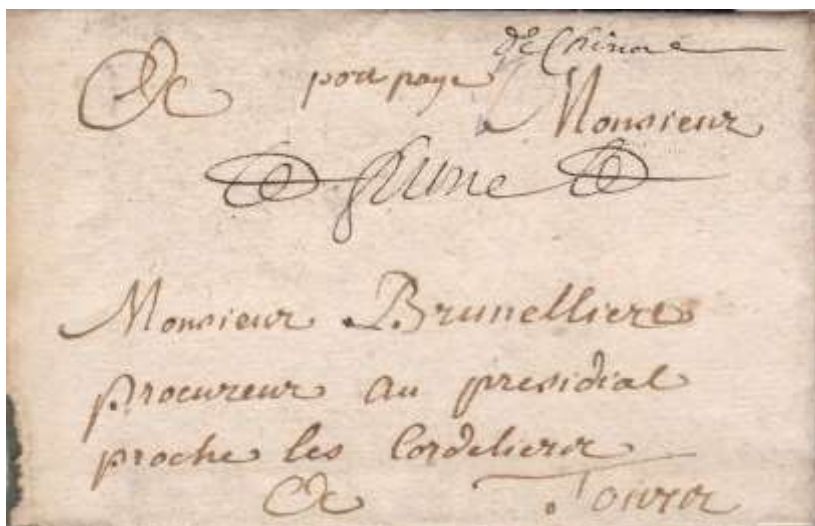 de Chinon
port paye
Monsieur
Monsieur Brunelliere
procureur au presidial
proche les Cordeliers
A Tours